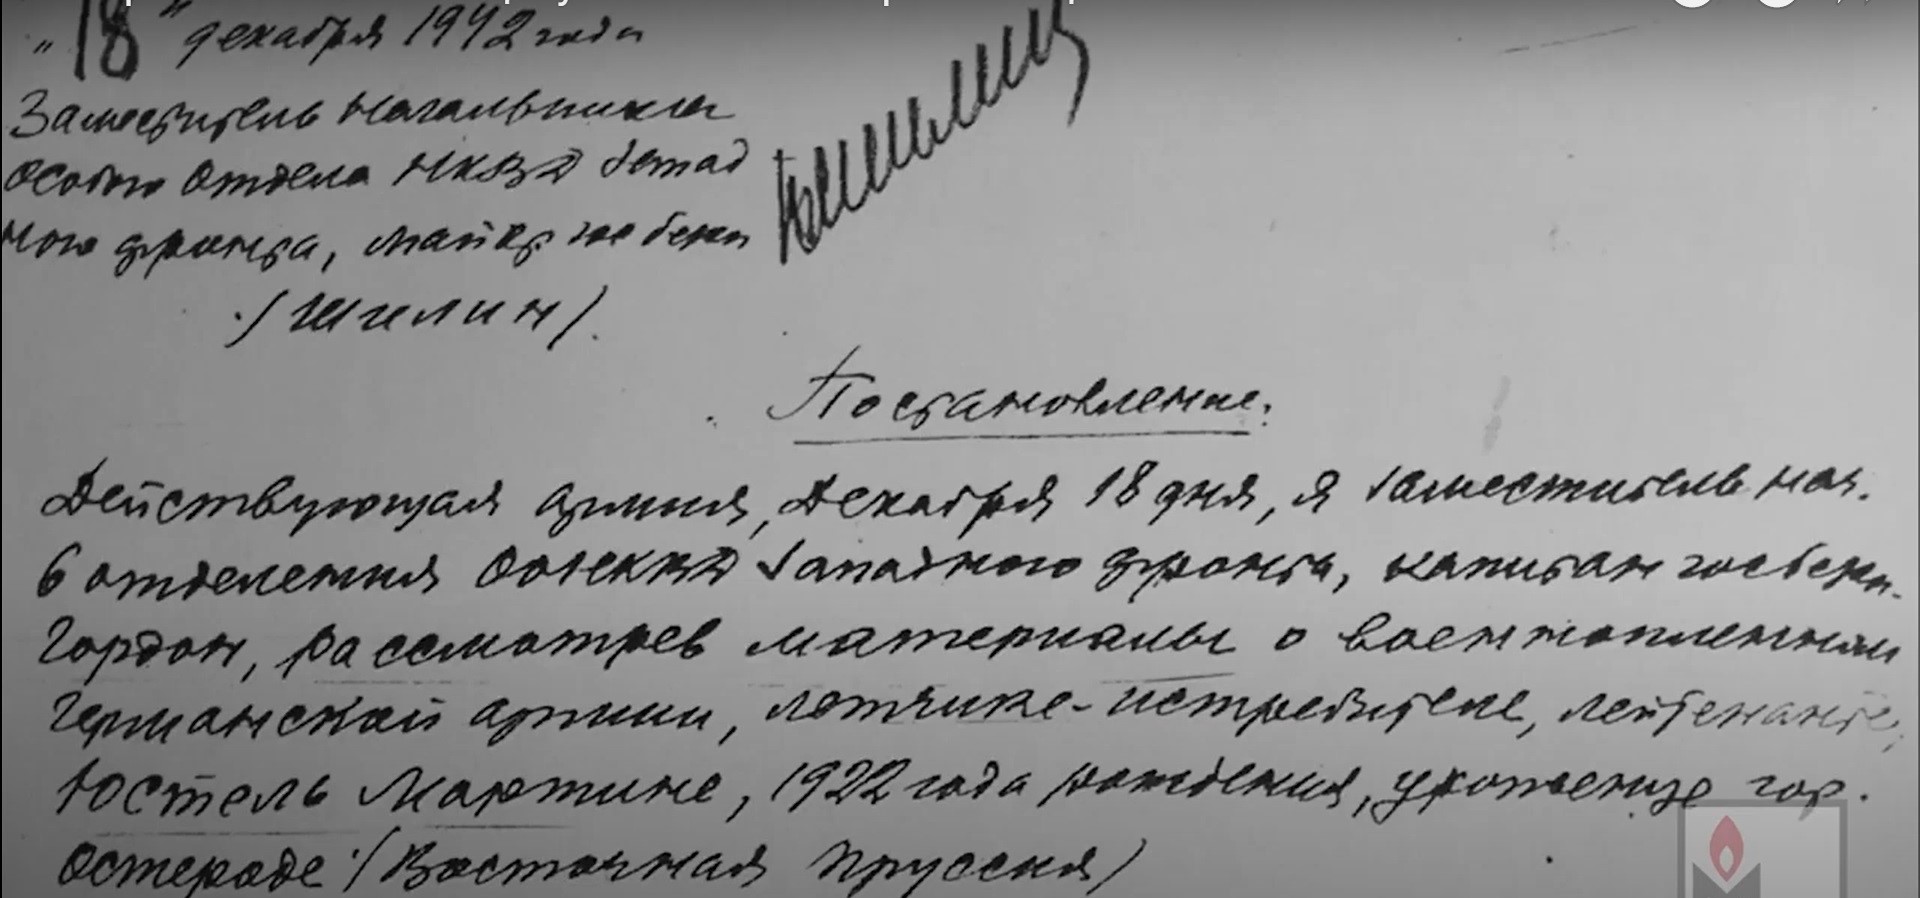 „18" декабря 1942 года
Заместитель Начальника
Особого Отдела НКВД Запад
ного фронта, майор госбезоп
/Шилин/.
Постановление.
Действующая армия, Декабря 18 дня, я Заместитель нач.
6 отделения ОО НКВД Западного фронта, капитан госбезоп.
Гордон, рассмотрев материалы о военнопленном
Германской армии, летчике-истребителе, лейтенанте,
Юстель Мартине, 1922 года рождения, уроженце гор.
Остероде /Восточная Пруссия/